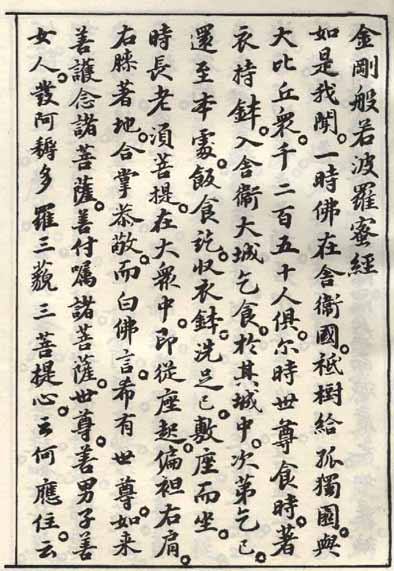 金剛般若波羅蜜經
如是我聞。一時佛在舍衞國祗樹給孤獨園與
大比丘衆。千二百五十人俱。尒時世尊食時。著
衣持鉢。入舍衞大城乞食。於其城中。次第乞已。
還至本處。飯食訖。收衣鉢。洗足已。敷座而坐。
時長老須菩提。在大衆中即從座起。偏袒右肩。
右膝著地。合掌恭敬。而白佛言。希有世尊。如来
善護念諸菩薩。善付囑諸菩薩。世尊。善男子善
女人。發阿耨多羅三藐三菩提心。云何應住。云